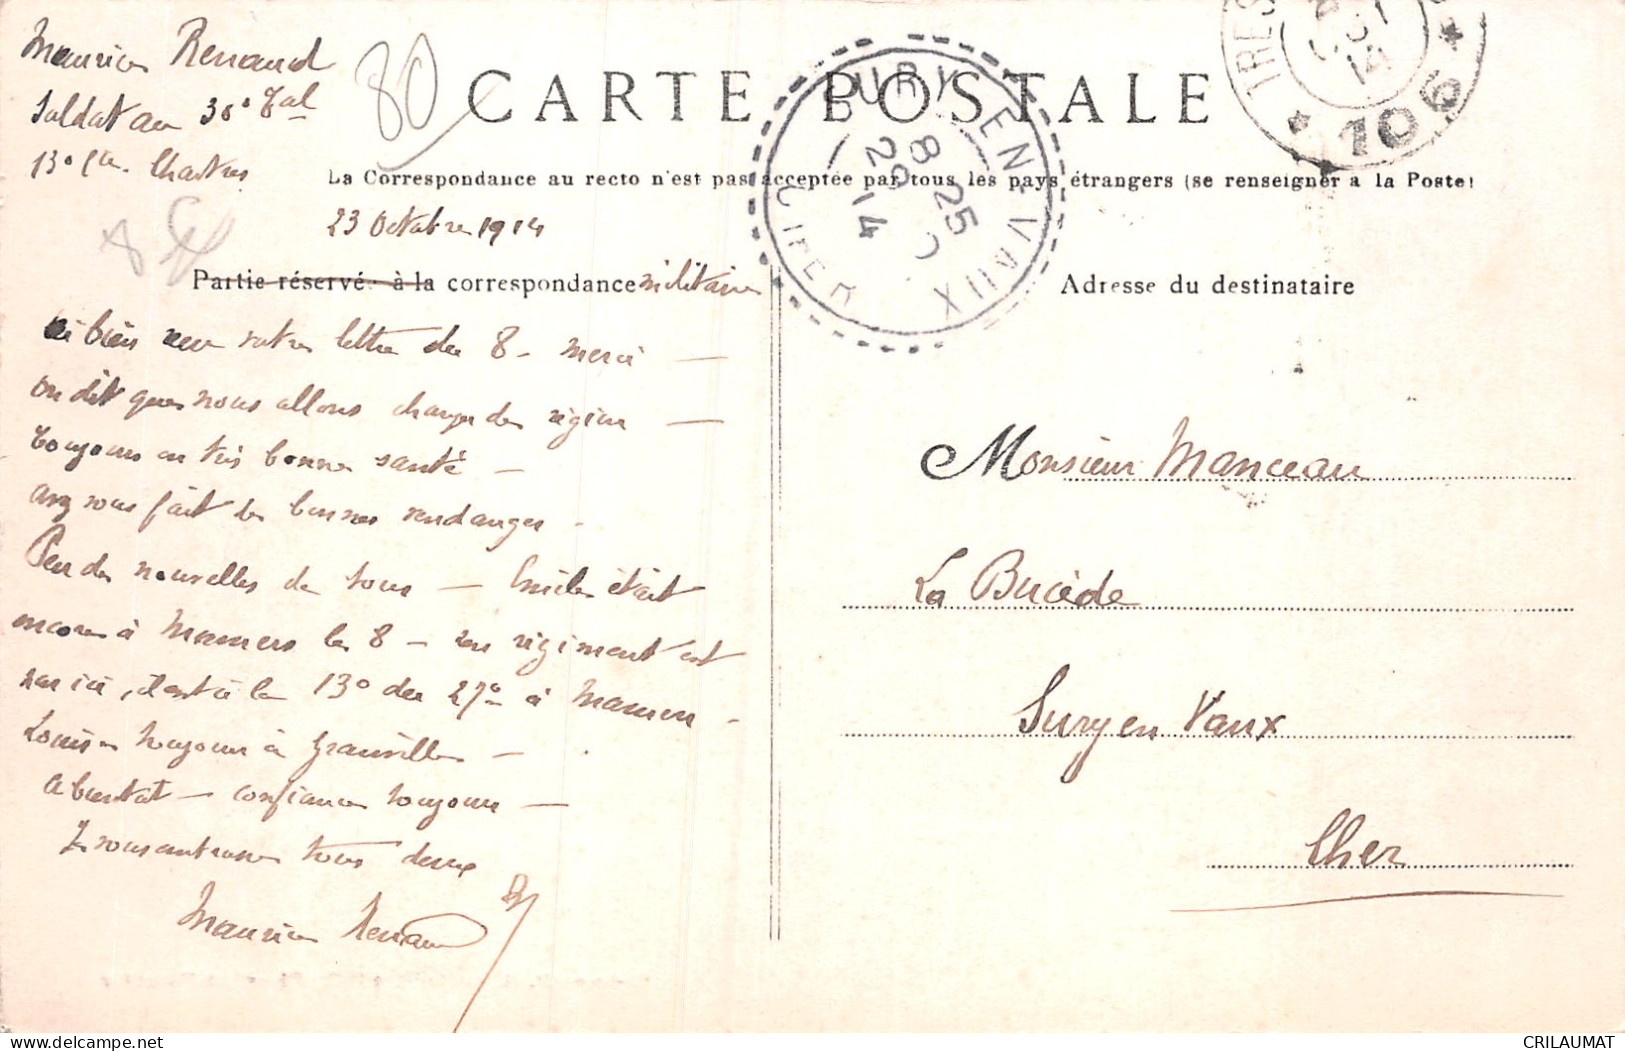 Maurice Renaud
Soldat au 30e Tal
13e Cie. Chartres
80
CARTE POSTALE
TRES
* 106 *
SURY-EN-VAUX
CHER
8 25
29
14
La Correspondance au recto n'est pas acceptée par tous les pays étrangers (se renseigner à la Poste)
23 Octobre 1914
Partie réservé à la correspondance militaire
Adresse du destinataire
ai bien reçu votre lettre du 8 - merci —
on dit que nous allons changer de région —
toujours en très bonne santé —
avez vous fait de bonnes vendanges -
Peu de nouvelles de tous — Emile était
encore à Mamers le 8 — son régiment est
par ici, il est à la 13e du 27e à Mamers -
Louis toujours à Granville —
A bientôt — confiance toujours —
Je vous embrasse tous deux
Maurice Renaud
Monsieur Manceau
La Bucède
Sury en Vaux
Cher
www.delcampe.net
CRILAUMAT